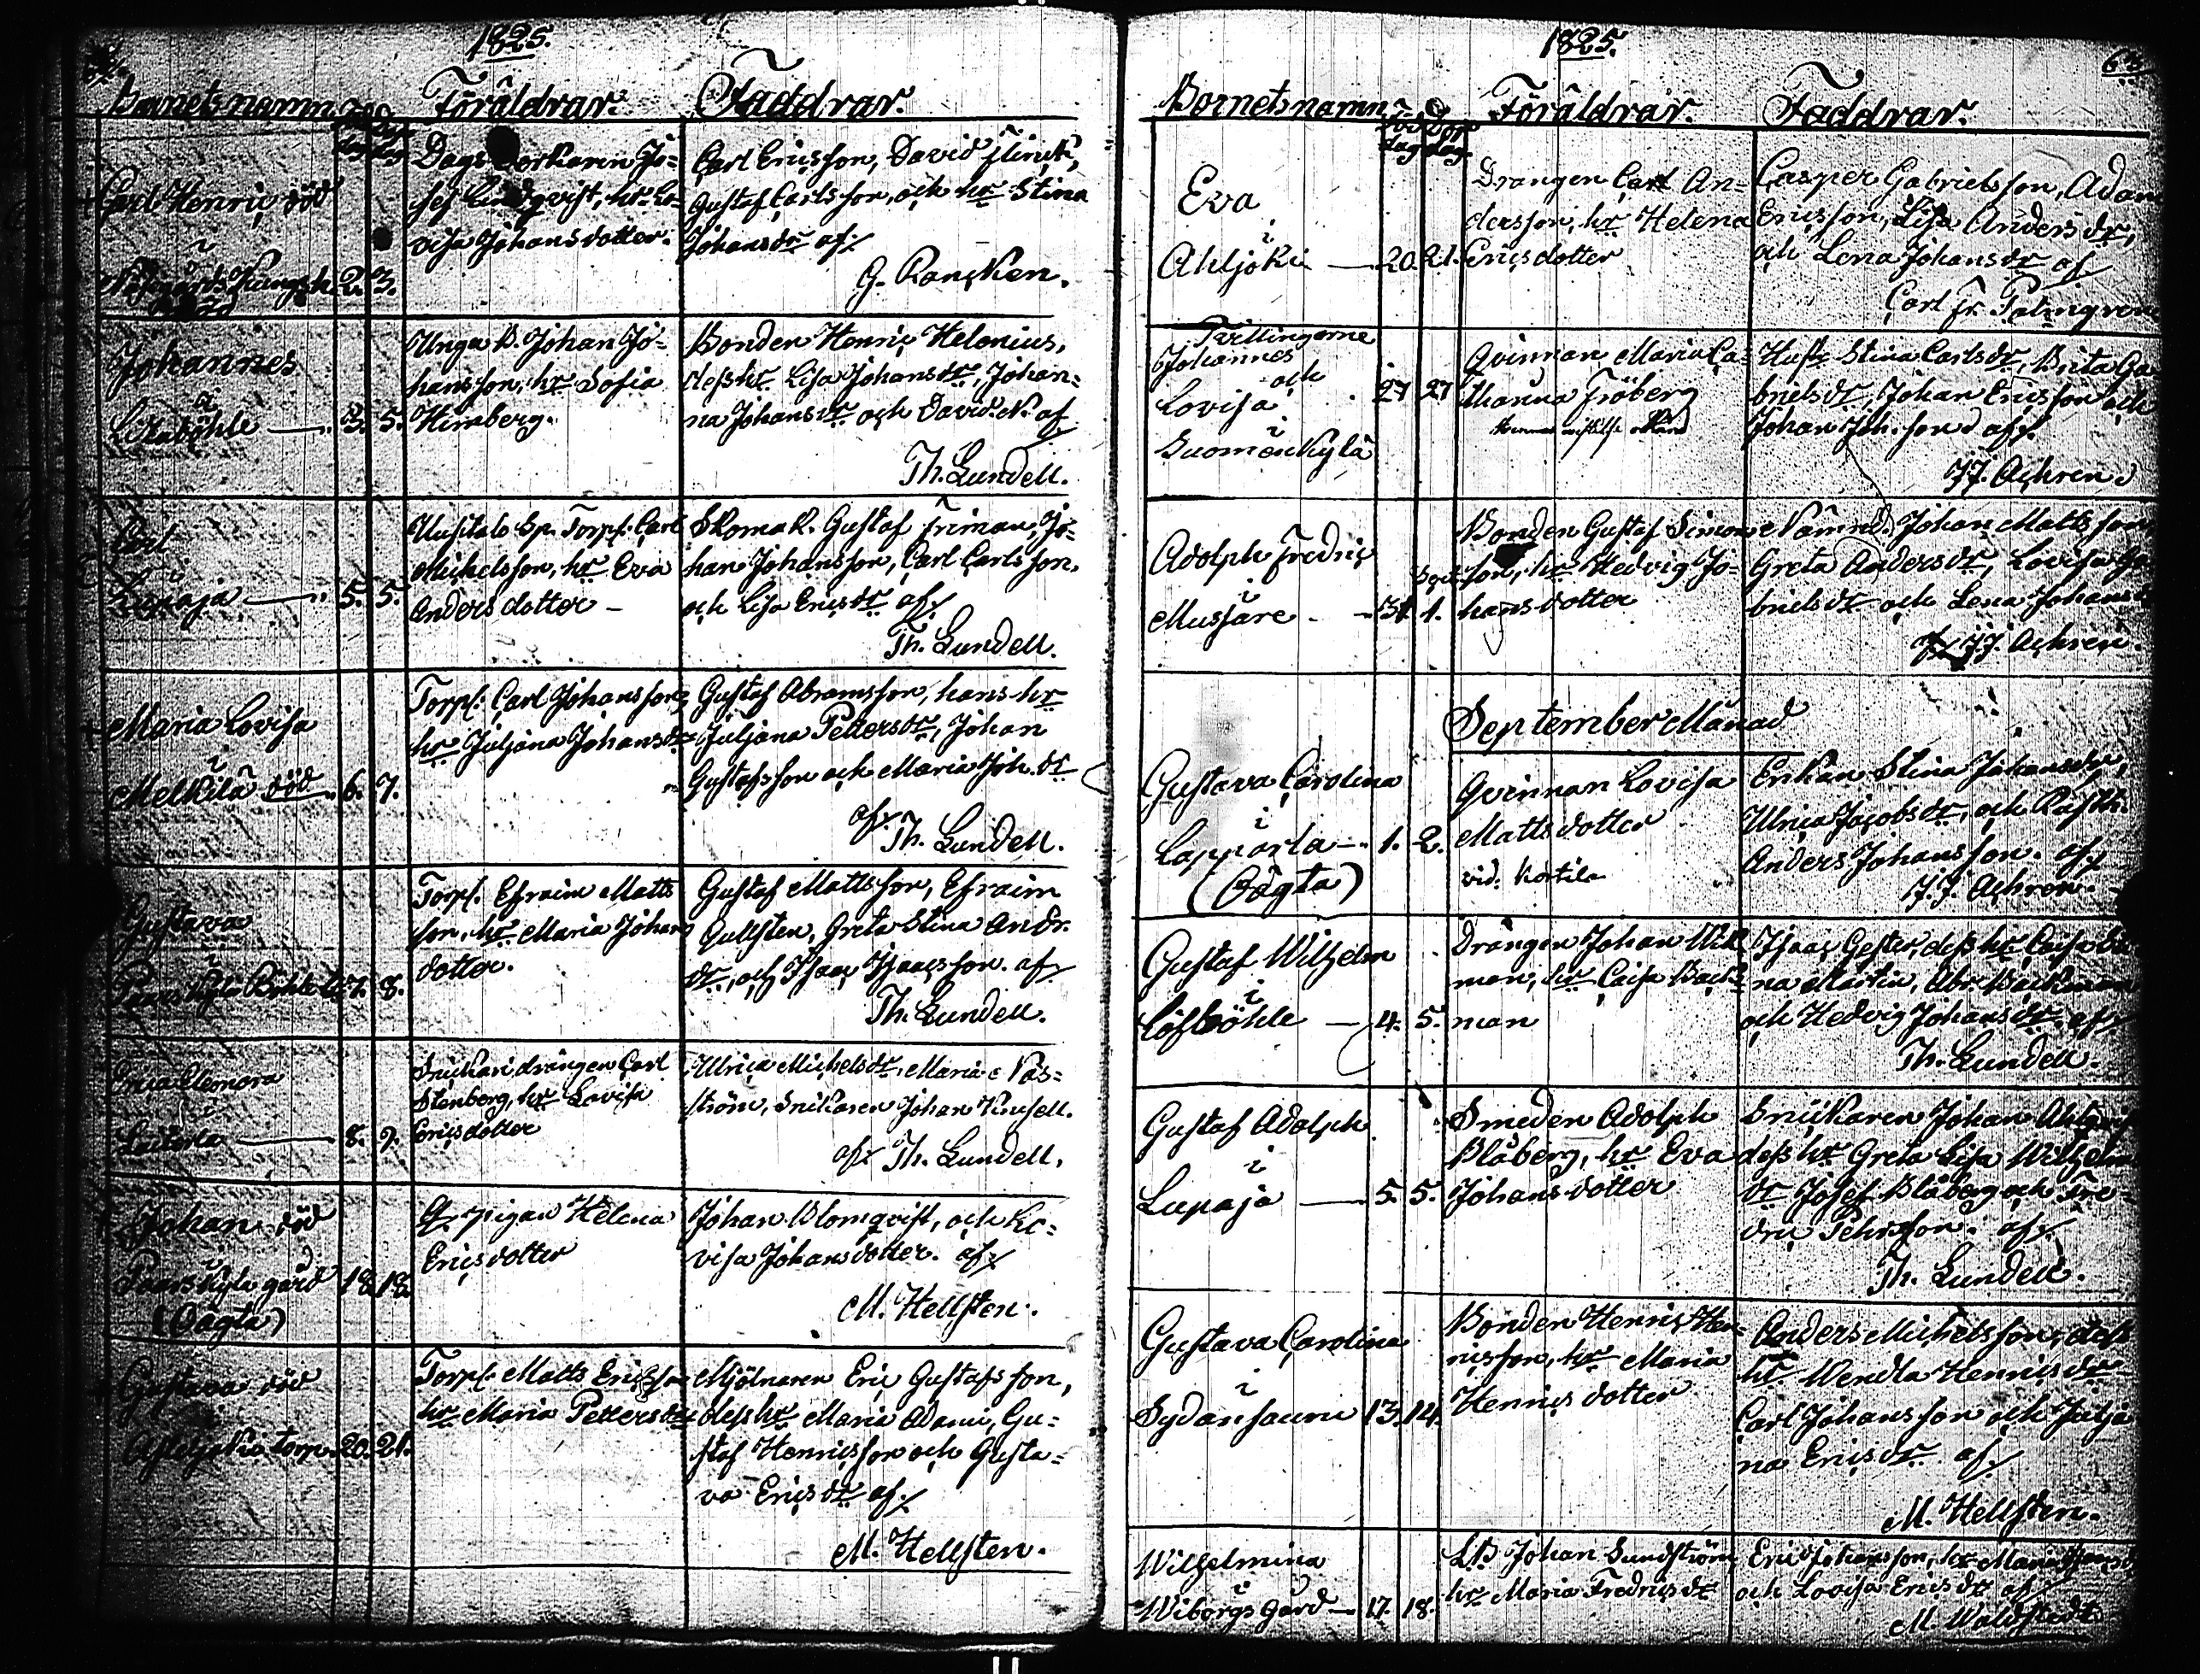 1825.
Barnets namn.
Född dag
Döp. dag
Föräldrar.
Faddrar.
Carl Henric död
i
2. 3.
Dags Jo=
sef Lindqvist, hr Lo=
visa Johansdotter.
Carl Ericsson, David Flinck,
Gustaf Carlsson, och hr Stina
Johansdr af
G. Rancken.
Johannes
i
3. 5.
Unga B. Johan Jo=
hansson, hr Sofia
Himberg.
Bonden Henric Helenius,
dess hr Lisa Johansdr, Johan=
na Johansdr och David N. af
Th. Lundell.
Carl
i
Lupaja 5. 5.
Uusitalo Sp. Torp. Carl
Michelsson, hr Eva
Anders dotter
Skomak. Gustaf Friman, Jo=
han Johansson, Carl Carlsson,
och Lisa Ericsdr af
Th. Lundell.
Maria Lovisa
i
Melkilä död 6. 7.
Torp. Carl Johansson,
hr Juljana Johansdr
Gustaf Abramsson, hans hr
Juljana Pettersdr, Johan
Gustafsson och Maria Joh. dr
af
Th. Lundell.
Gustava
i
7. 8.
Torp. Efraim Matts
son, hr Maria Johans
dotter.
Gustaf Mattsson, Efraim
Gullsten, Greta Stina Andr.
dr, och Isaac Isaacsson. af
Th. Lundell.
Erica Eleonora
i
8. 9.
Snickari drängen Carl
Stenberg, hr Lovisa
Ericsdotter
Ulrica Michelsdr, Maria Nas=
ström, Snickaren Johan
af Th. Lundell.
Johan död
i
Paarskylä gård 18. 18.
(Oägta)
pigan Helena
Ericsdotter
Johan Blomqvist, och Lo=
visa Johansdotter. af
M. Hellsten.
Gustava död
i
Ahljoki torp. 20. 21.
Torp. Matts Ericsson
hr Maria Pettersdr
Mjölnaren Eric Gustafsson,
dess hr Maria Adami, Gu=
staf Henricsson och Gusta=
va Ericsdr af
M. Hellsten.
1825.
Barnets namn
Född dag
Döp dag
Föräldrar.
Faddrar.
Eva
i
Ahljoki 20. 21.
Drängen Carl An=
dersson, hr Helena
Ericsdotter
Casper Gabrielsson, Adam
Ericsson, Lisa Andersdr,
och Lena Johansdr af
Carl Fr. Palmgren
Tvillingarne
Johannes
och
Lovisa 27 27
i
Suomenkylä
Qvinnan Maria Ca=
tharina Fröberg
Hustr. Stina Carlsdr, Brita Ga=
brielsdr, Johan Ericsson och
Johan Joh.son af
J.J. Achrén
Adolph Fredric
i
Musjäre 31. Sept. 1.
Bonden Gustaf Simons
son, hr Hedvig Jo=
hansdotter
Nämnd. Johan Mattsson
Greta Andersdr, Lovisa Ga=
brielsdr och Lena Johansdr
af J.J. Achrén.
September Månad
Gustava Carolina
i
Lapparla 1. 2.
(Oägta)
Qvinnan Lovisa
Matts dotter
vid. Kortila
Enkan Stina Johansdr,
Ulrica Jacobsdr, och Rusth.
Anders Johansson. af
J.J. Achrén.
Gustaf Wilhelm
i
Löfböhle 4. 5.
Drängen Johan Wik
man, hr Caisa Back=
man
Isaac Gester, dess hr Caisa
na Martin, Abr. Backman
och Hedvig Johansdr. af
Th. Lundell.
Gustaf Adolph
i
Lupaja 5. 5.
Smeden Adolph
Blåberg, hr Eva
Johansdotter
Snickaren Johan
dess hr Greta Lisa Wilhelms
dr Josef Blåberg och Fre=
dric Pehrsson. af
Th. Lundell.
Gustava Carolina
i
Sydänsauru 13. 14.
Bonden Henric Hen=
ricsson, hr Maria
Henricsdotter
Anders Michelsson, dess
hr Wendla Henricsdr
Carl Johansson och Julja
na Ericsdr af
M. Hellsten.
Wilhelmina
i
Wiborgs Gård 17. 18.
LB Johan Sundström
hr Maria Fredricsdr
Eric Johansson, hr Maria
och Lovisa Ericsdr af
M. Waldstedt.